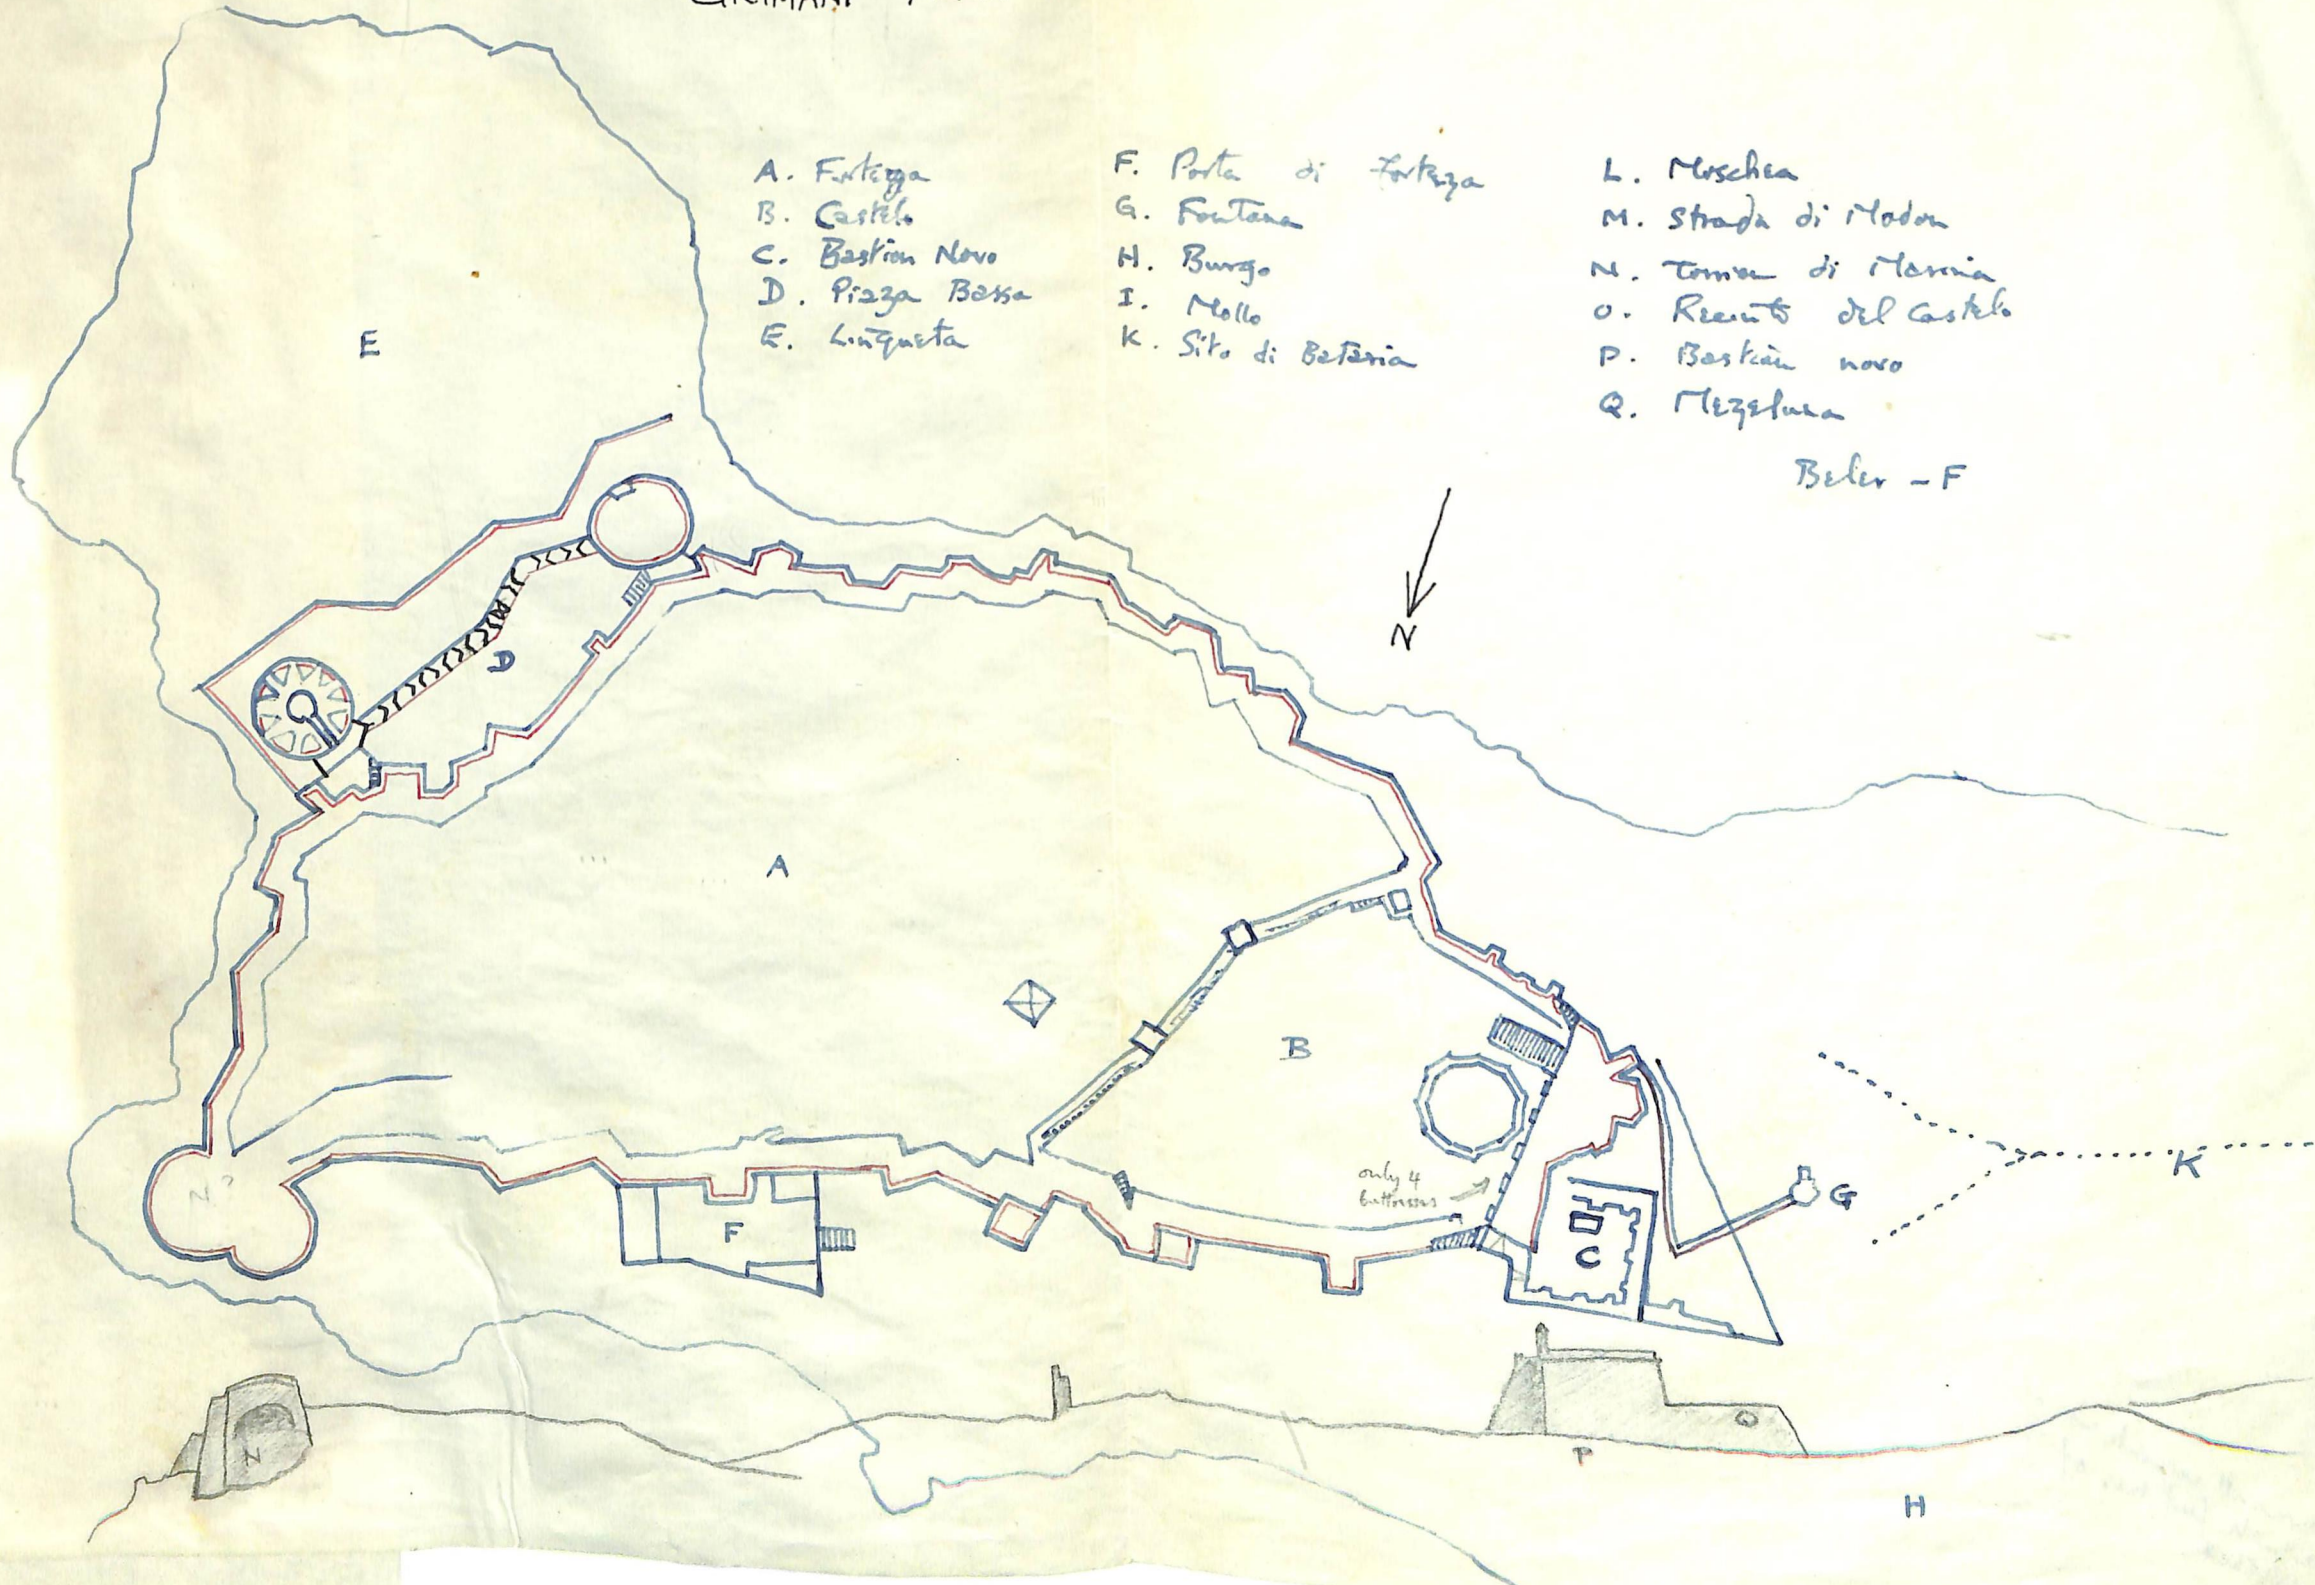 GRIMANI
A. Fortezza
B. Castelo
C. Bastion Novo
D. Piazza Bassa
E. Linqueta
F. Porta di Fortezza
G. Fontana
H. Burgo
I. Mollo
K. Sito di Bateria
L. Moschea
M. Strada di Modon
N. Torrion di Marina
O. Recinto del Castelo
P. Bastion novo
Q. Mezeluna
Beler - F
E
N
D
A
B
K
N?
only 4
buttresses
G
F
C
N
P
H